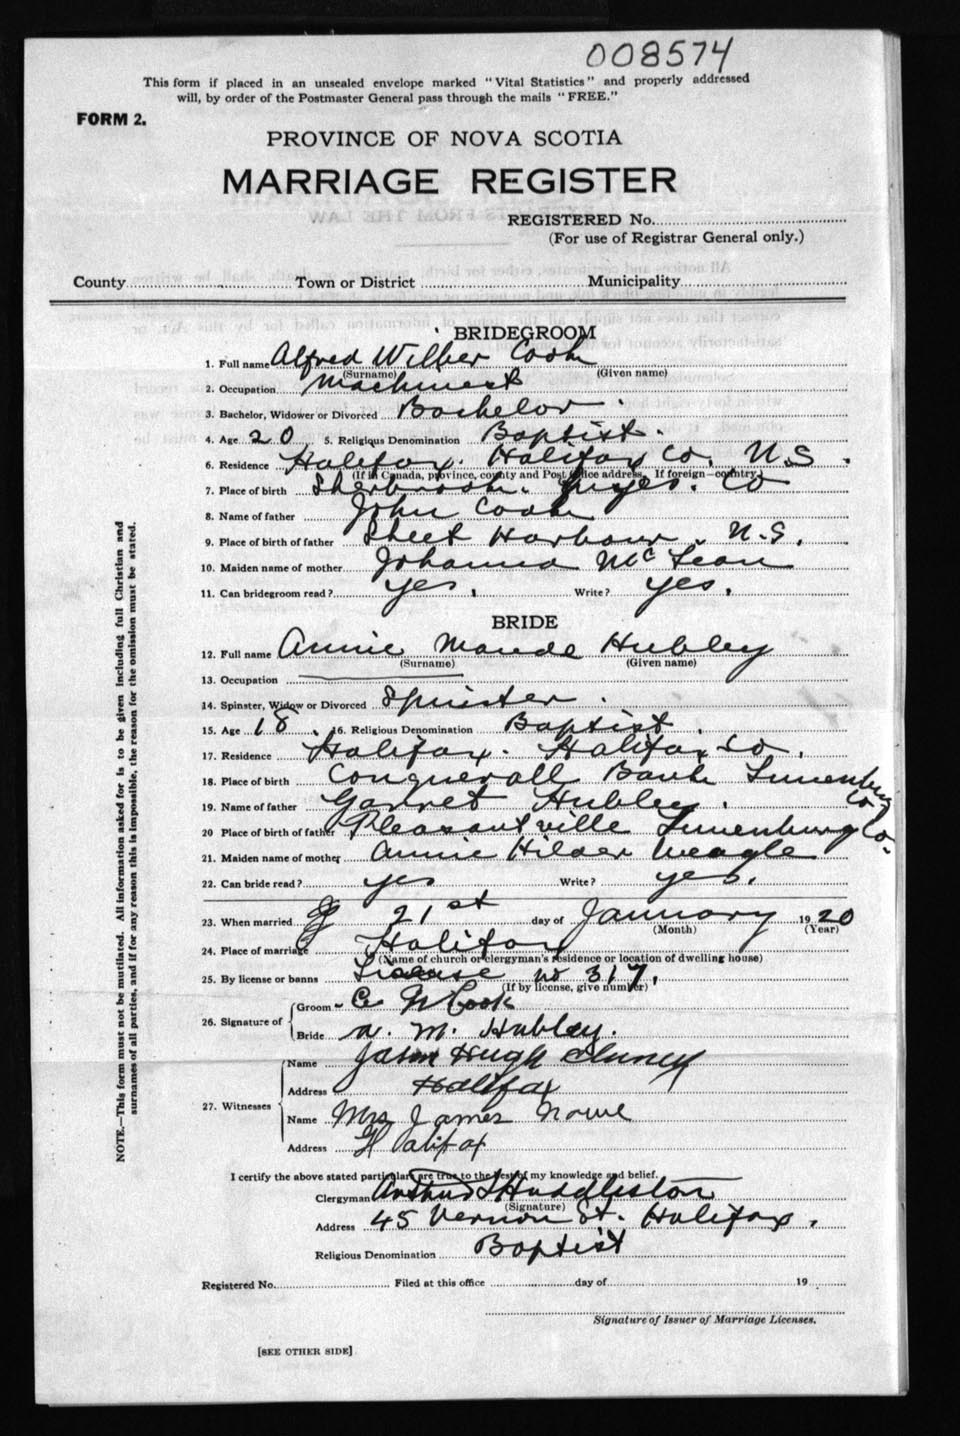 008574
This form if placed in an unsealed envelope marked "Vital Statistics" and properly addressed
will, by order of the Postmaster General pass through the mails "FREE."
FORM 2.
PROVINCE OF NOVA SCOTIA
MARRIAGE REGISTER
REGISTERED No.
(For use of Registrar General only.)
County Town or District Municipality
BRIDEGROOM
1. Full name Alfred Wilber Cook
(Surname) (Given name)
2. Occupation Machinest
3. Bachelor, Widower or Divorced Bachelor.
4. Age 20 5. Religious Denomination Baptist.
6. Residence Halifax. Halifax Co. N.S.
(If in Canada, province, county and Post Office address. If foreign—country)
7. Place of birth Sherbrook. Guyes. Co
8. Name of father John Cook
9. Place of birth of father Sheet Harbour. N.S.
10. Maiden name of mother Johanna McLean
11. Can bridegroom read? yes. Write? yes.
BRIDE
12. Full name Annie Maude Hubley
(Surname) (Given name)
13. Occupation
14. Spinster, Widow or Divorced Spinster.
15. Age 18. 16. Religious Denomination Baptist.
17. Residence Halifax. Halifax Co.
18. Place of birth Conquerall Bank Lunenburg Co
19. Name of father Garnet Hubley.
20 Place of birth of father Pleasantville Lunenburg Co.
21. Maiden name of mother Annie Hilder Weagle
22. Can bride read? yes Write? yes.
23. When married 21st day of January 1920
(Month) (Year)
24. Place of marriage Halifax
(Name of church or clergyman's residence or location of dwelling house)
25. By license or banns License no 317.
(If by license, give number)
26. Signature of Groom Cook
Bride A. M. Hubley.
27. Witnesses Name Hugh
Address Halifax
Name Mrs James Nowe
Address Halifax
I certify the above stated particulars are true to the best of my knowledge and belief.
Clergyman Arthur Huddleston
(Signature)
Address 45 Vernon St. Halifax.
Religious Denomination Baptist
Registered No. Filed at this office day of 19
Signature of Issuer of Marriage Licenses.
[SEE OTHER SIDE]
NOTE.—This form must not be mutilated. All information asked for is to be given including full Christian and
surnames of all parties, and if for any reason this is impossible, the reason for the omission must be stated.